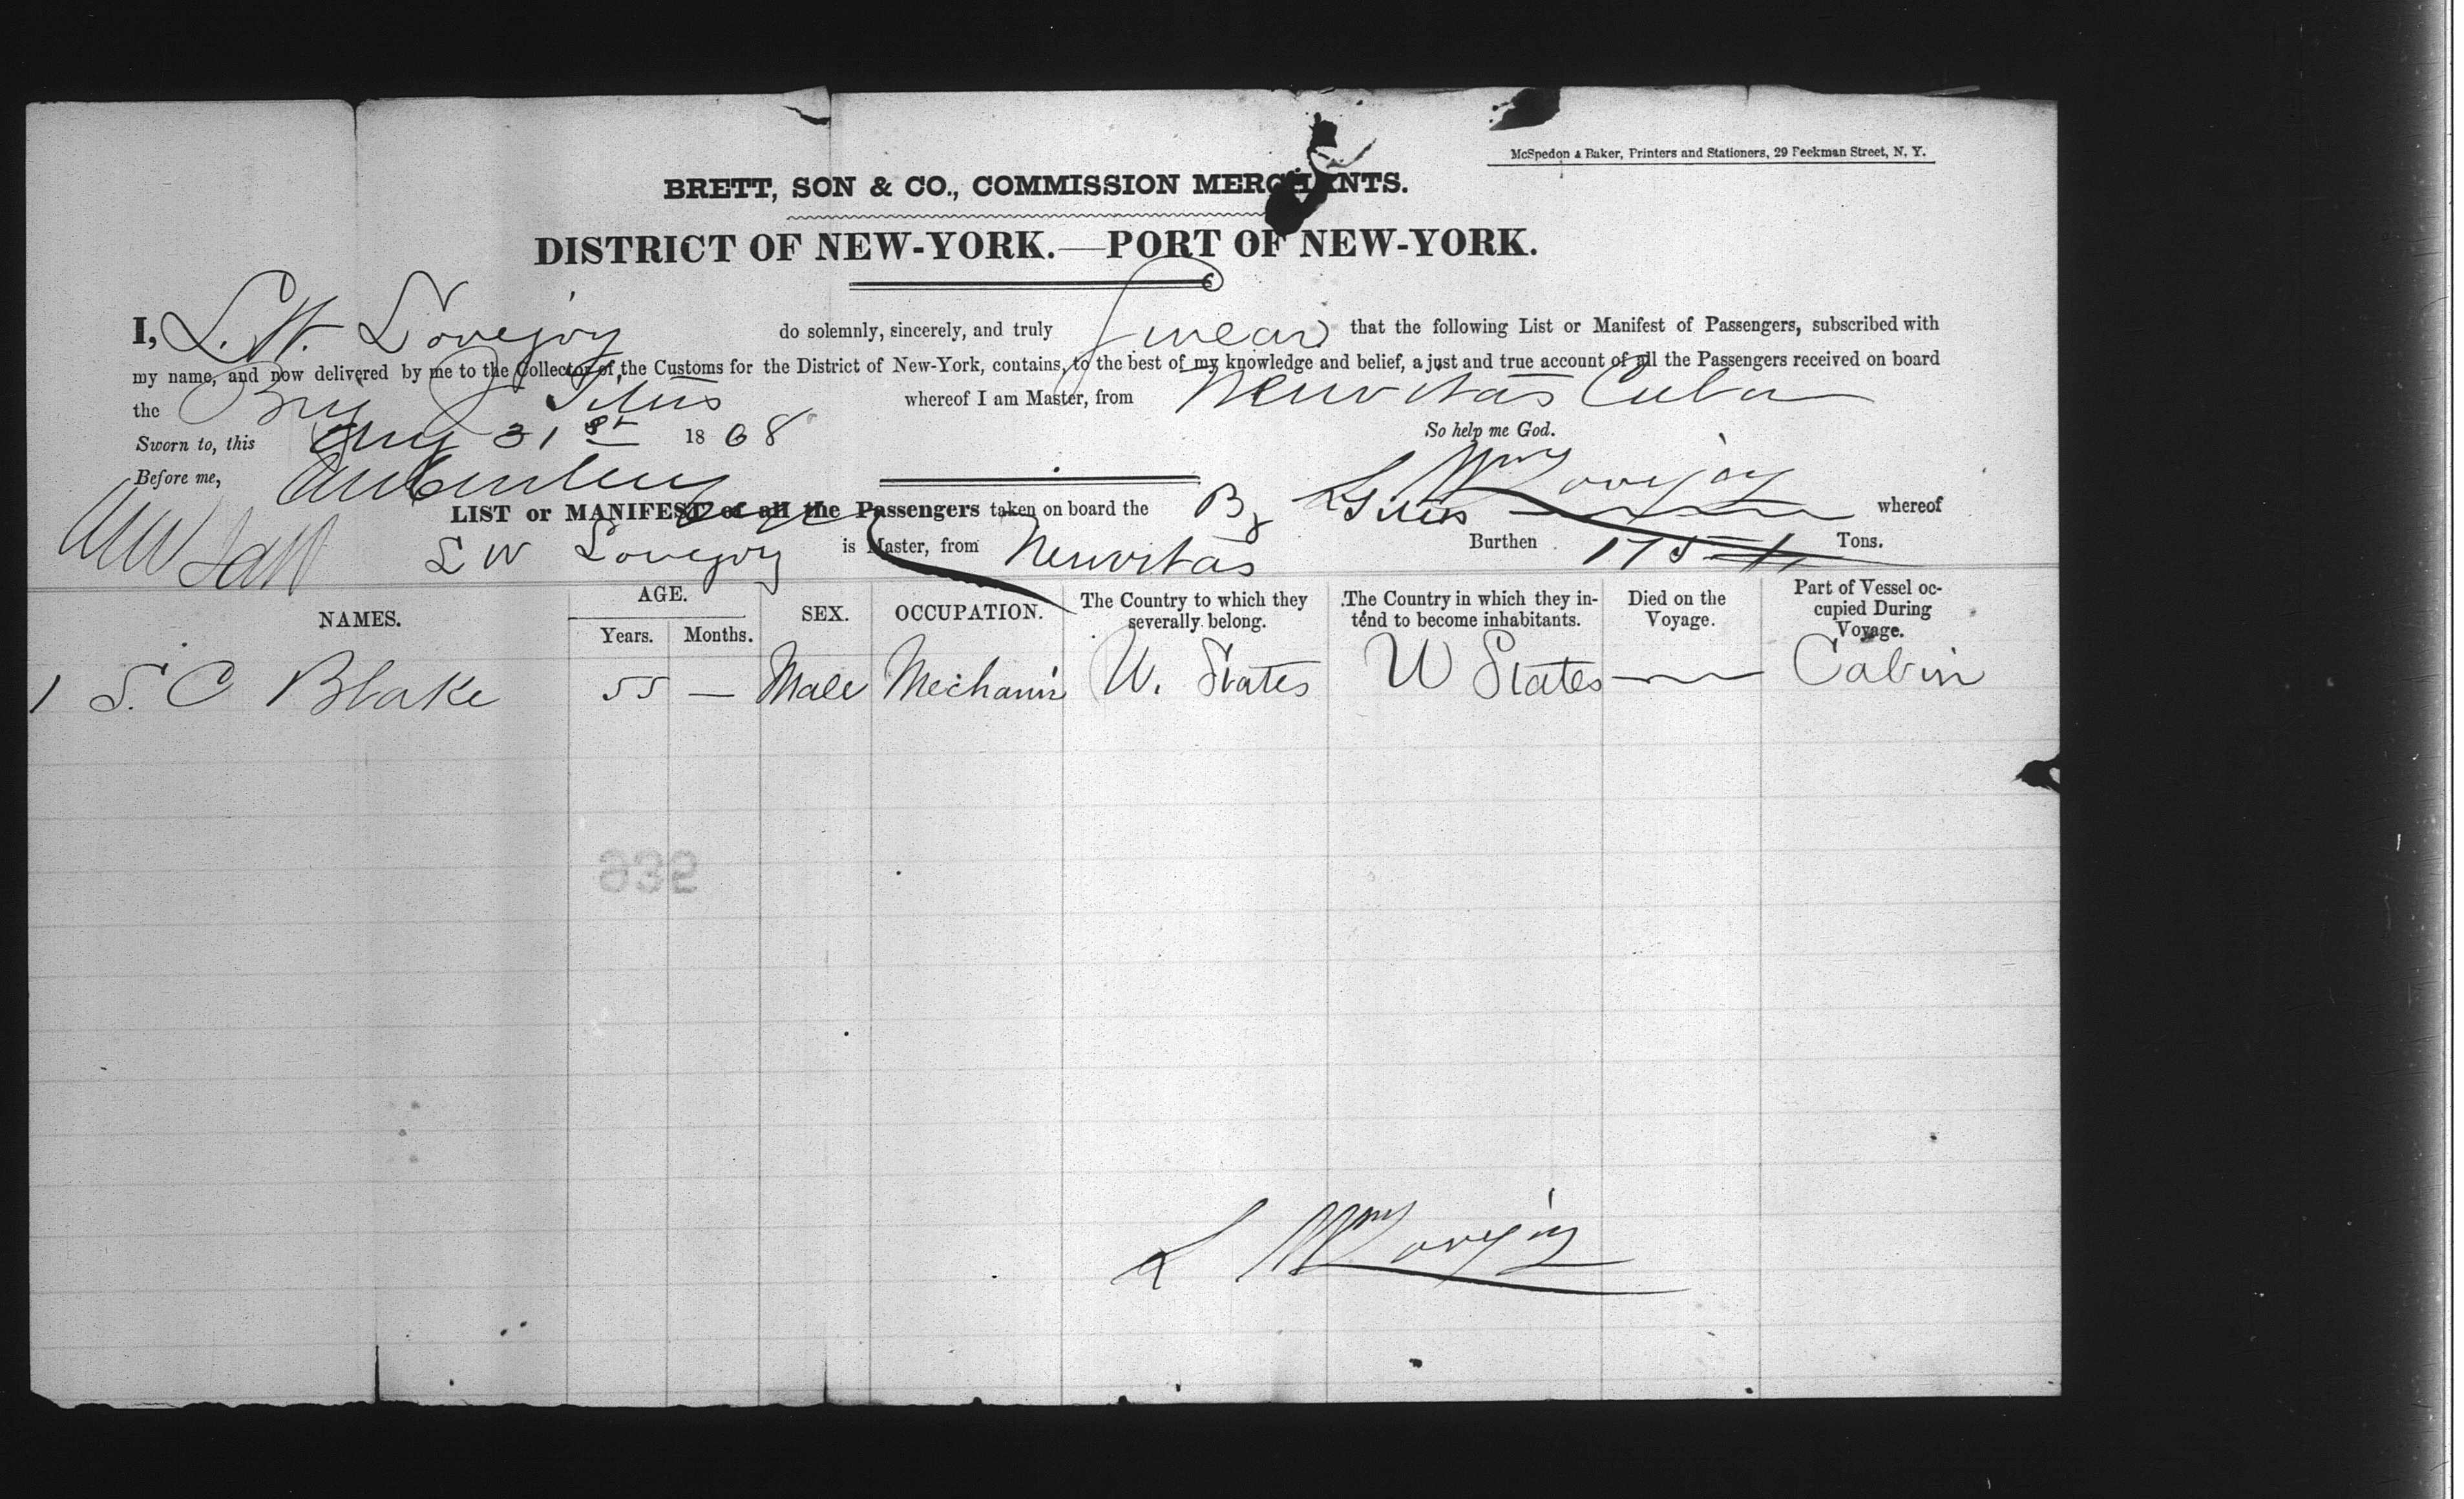 McSpedon & Baker, Printers and Stationers, 29 Beekman Street, N. Y.
BRETT, SON & CO., COMMISSION MERCHANTS.
DISTRICT OF NEW-YORK.—PORT OF NEW-YORK.
I, L. W. Lovejoy do solemnly, sincerely, and truly swear that the following List or Manifest of Passengers, subscribed with
my name, and now delivered by me to the Collector of the Customs for the District of New-York, contains, to the best of my knowledge and belief, a just and true account of all the Passengers received on board
the Brig J Titus whereof I am Master, from Neuvitas Cuba
Sworn to, this Aug 31st 1868 So help me God.
Before me, L Wm Lovejoy
LIST or MANIFEST of all the Passengers taken on board the B J Titus whereof
L W Lovejoy is Master, from Neuvitas Burthen Tons.
NAMES. AGE. Years. Months. SEX. OCCUPATION. The Country to which they severally belong. The Country in which they intend to become inhabitants. Died on the Voyage. Part of Vessel occupied During Voyage.
1 S. C Blake 55 — Male Mechanic U. States U States — Cabin
L Wm Lovejoy